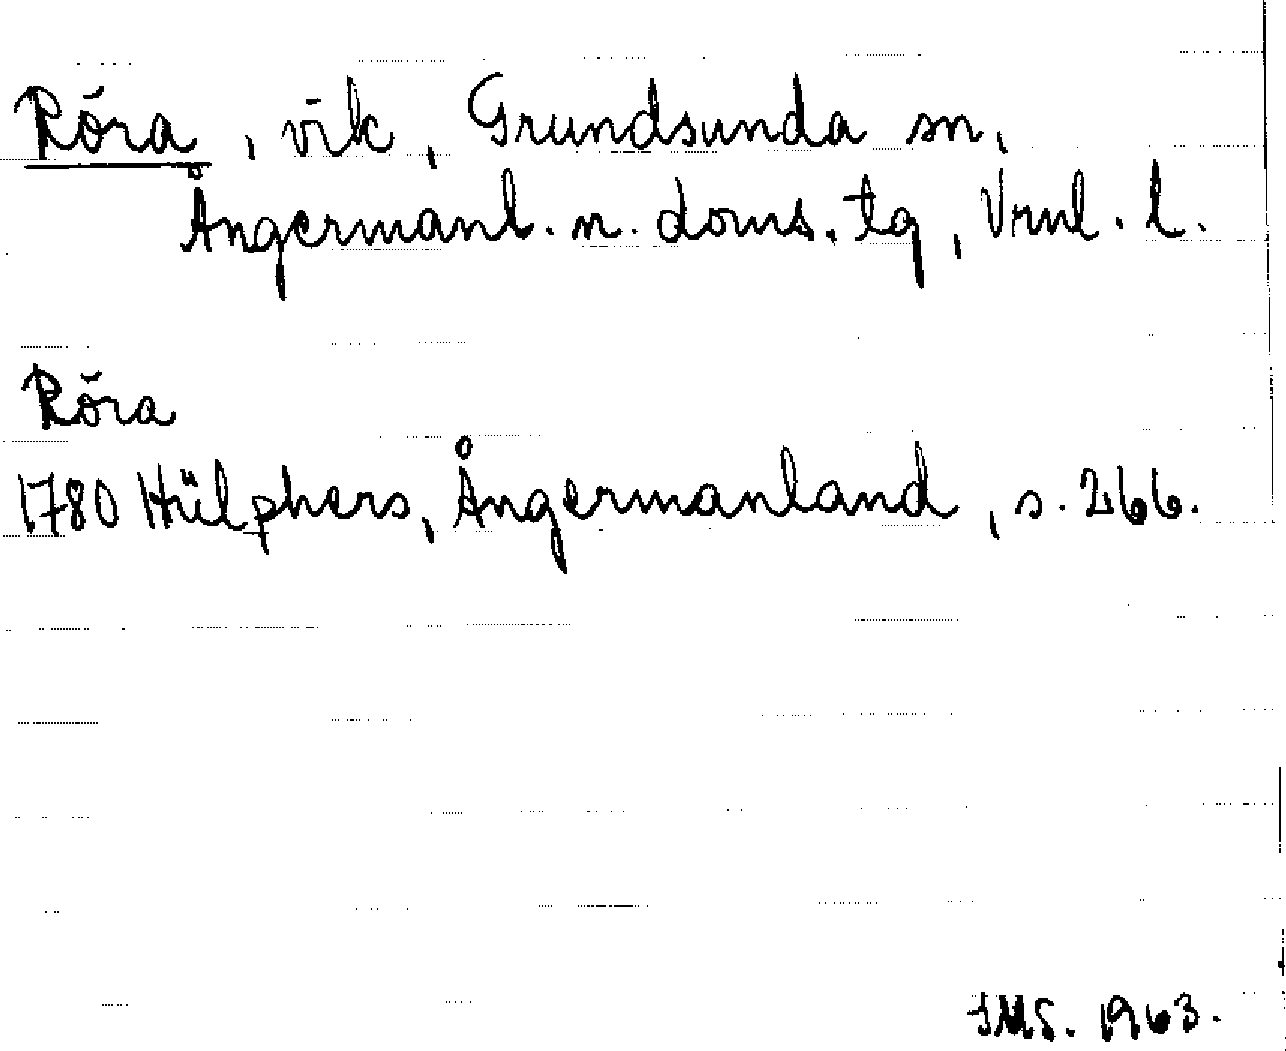 Röra, vik, Grundsunda sn,
Ångermanl. n. doms. tg, Vrnl. l.
Röra
1780 Hülphers, Ångermanland, s. 266.
SMS. 1963.